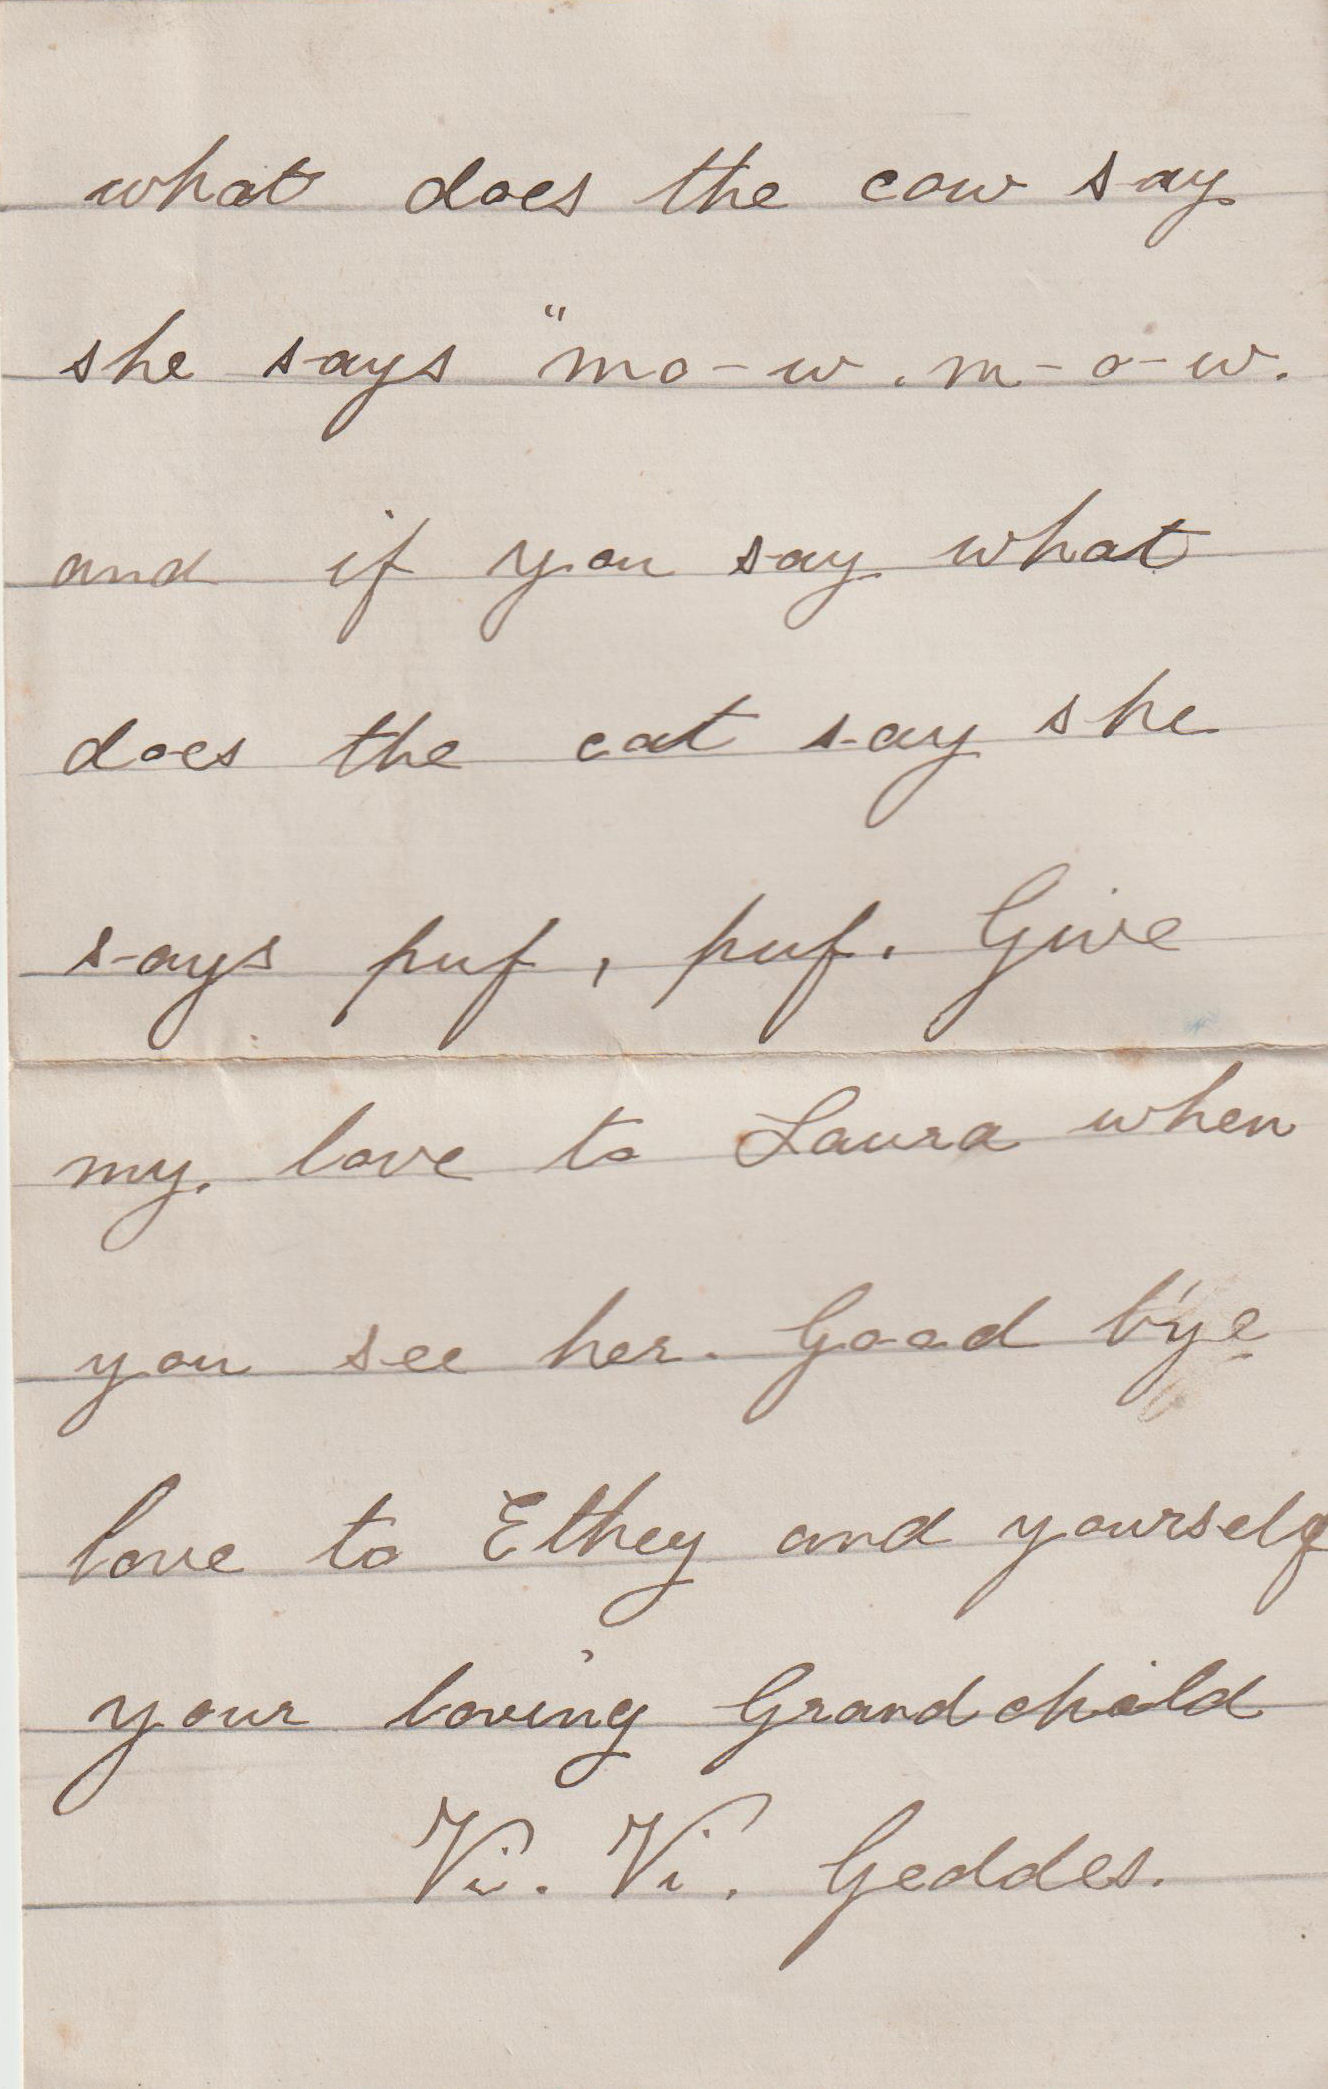 what does the cow say
she says "mo-w. m-o-w.
and if you say what
does the cat say she
says puf, puf. Give
my. love to Laura when
you see her. Good b'ye
love to Ethey and yourself
your loving Grandchild
Vi. Vi. Geddes.